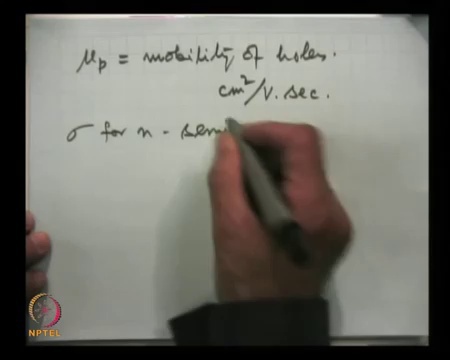 μp = mobility of holes.
cm²/V. sec.
σ for n - semi
NPTEL